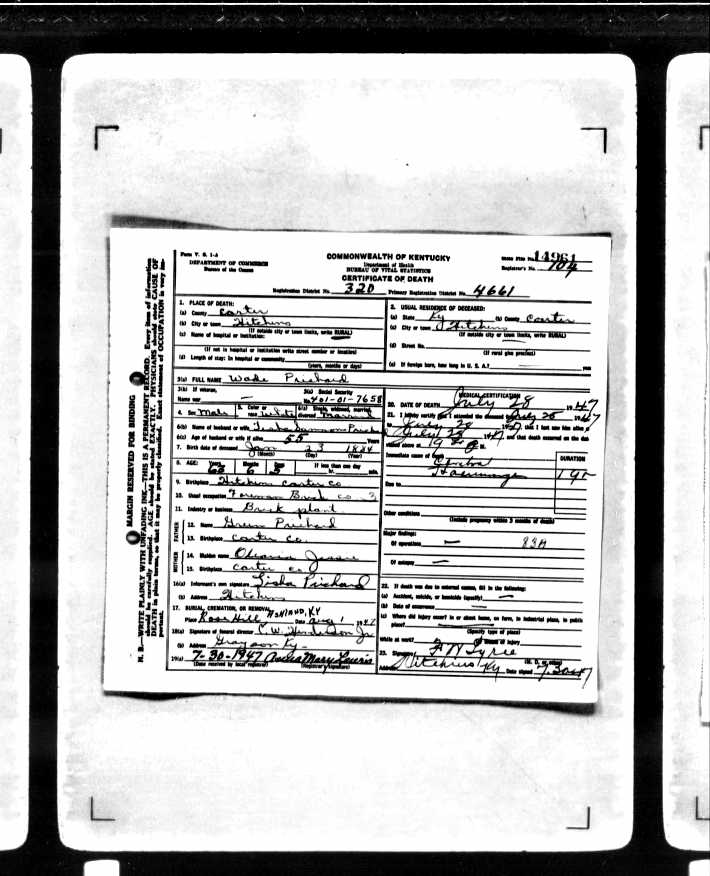 Form V. S. 1-A
DEPARTMENT OF COMMERCE
Bureau of the Census
COMMONWEALTH OF KENTUCKY
Department of Health
BUREAU OF VITAL STATISTICS
CERTIFICATE OF DEATH
State File No. 14961
Registrar's No. 104
Registration District No. 320 Primary Registration District No. 4661
MARGIN RESERVED FOR BINDING
N. B.—WRITE PLAINLY WITH UNFADING INK—THIS IS A PERMANENT RECORD. Every item of information
should be carefully supplied. AGE should be stated EXACTLY. PHYSICIANS should state CAUSE OF
DEATH in plain terms, so that it may be properly classified. Exact statement of OCCUPATION is very im-
portant.
1. PLACE OF DEATH:
(a) County Carter
(b) City or town Hitchins
(If outside city or town limits, write RURAL)
(c) Name of hospital or institution:
(If not in hospital or institution write street number or location)
(d) Length of stay: In hospital or community
(years, months or days)
2. USUAL RESIDENCE OF DECEASED:
(a) State Ky (b) County Carter
(c) City or town Hitchins
(If outside city or town limits, write RURAL)
(d) Street No.
(If rural give precinct)
(e) If foreign born, how long in U. S. A.? years
3(a) FULL NAME Wade Prichard
3(b) If veteran,
Name war —
3(c) Social Security
No. 401-01-7658
4. Sex Male 5. Color or race White 6(a) Single, widowed, married, divorced Married
6(b) Name of husband or wife Prichard
6(c) Age of husband or wife if alive 55 Years
7. Birth date of deceased Jan 23 1884
(Month) (Day) (Year)
8. AGE: Years 63 Months 6 Days 5 If less than one day
hr. min.
9. Birthplace Hitchins Carter Co
10. Usual occupation Foreman Brick Co
11. Industry or business Brick plant
FATHER
12. Name Green Prichard
13. Birthplace Carter Co.
MOTHER
14. Maiden name
15. Birthplace Carter Co
16(a) Informant's own signature Lisha Prichard
(b) Address Hitchins
17. BURIAL, CREMATION, OR REMOVAL
Place Rose Hill Ashland, Ky Date Aug 1 1947
18(a) Signature of funeral director C. W. Henderson Jr
(b) Address Grayson Ky.
19(a) 7-30-1947 Mary Lewis
(Date received by local registrar) (Registrar's signature)
MEDICAL CERTIFICATION
20. DATE OF DEATH July 28 1947
21. I hereby certify that I attended the deceased from July 20 1947
to July 28 1947, that I last saw him alive on
July 1947, and that death occurred on the date
stated above at M.
Immediate cause of death Cerebral
Haemorrhage
DURATION
Due to
Other conditions
(Include pregnancy within 3 months of death)
Major findings:
Of operations — 83A
Of autopsy —
22. If death was due to external causes, fill in the following:
(a) Accident, suicide, or homicide (specify) —
(b) Date of occurrence —
(c) Where did injury occur? in or about home, on farm, in industrial place, in public
place?
(Specify type of place)
While at work? Means of injury
23. Signature
(M. D. or other)
Address Hitchins Ky. Date signed 7.30.47